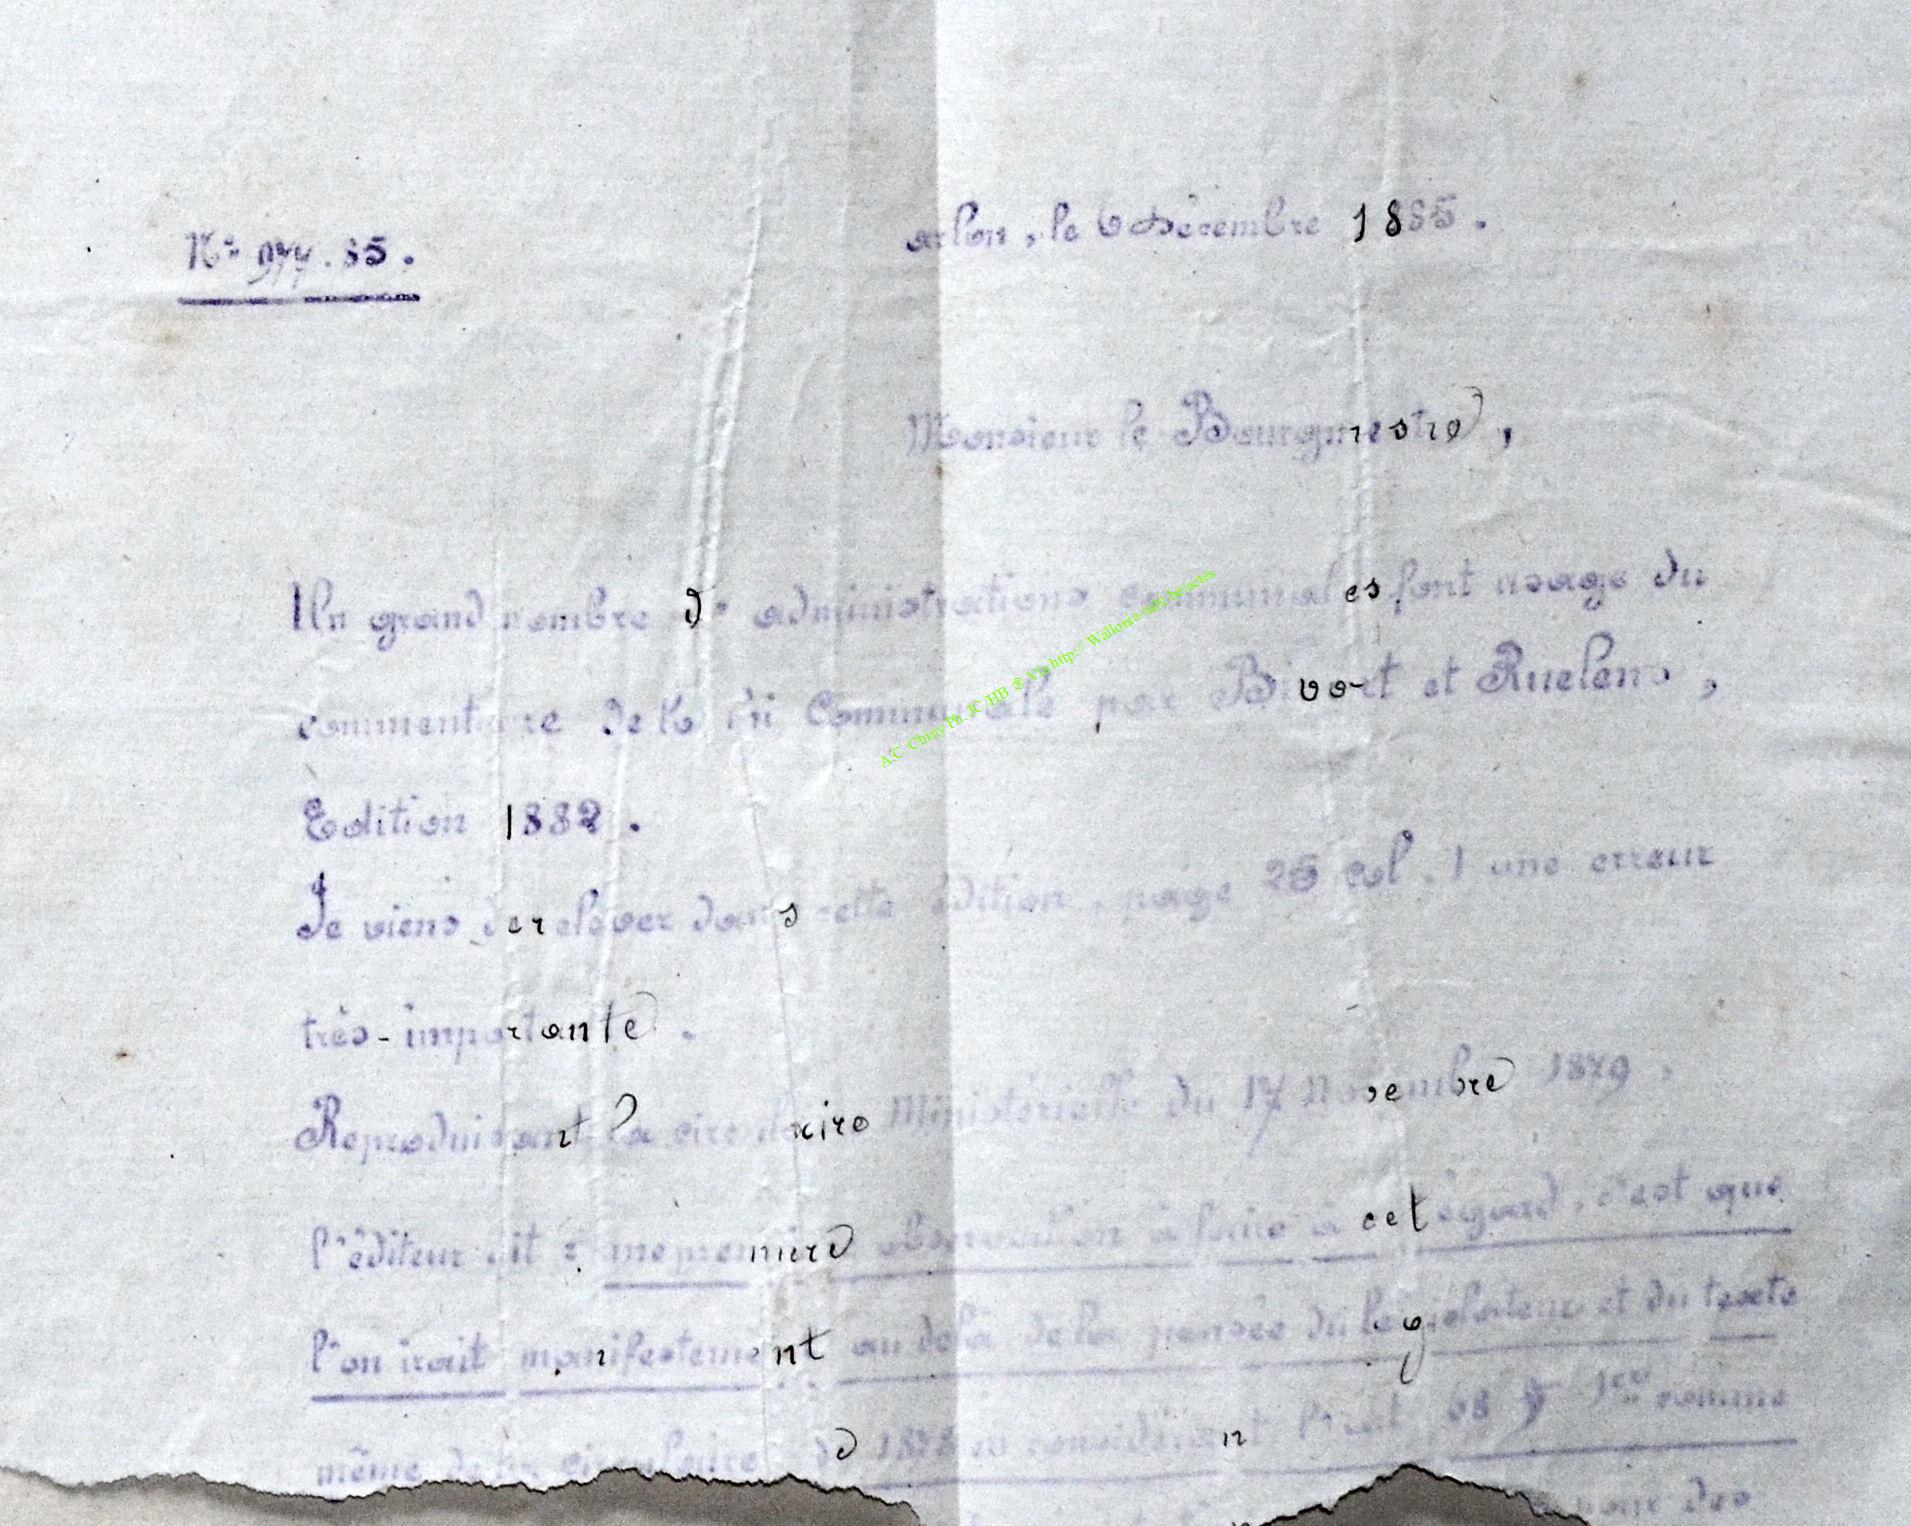 Arlon, le 6 Décembre 1885.
N° 977.85.
Monsieur le Bourgmestre,
Un grand nombre d'administrations communales font usage du
commentaire de la loi Communale par Bivort et Ruelens,
Edition 1882.
Je viens de relever dans cette édition, page 25 col. 1 une erreur
très-importante.
Reproduisant la circulaire Ministérielle du 17 Novembre 1879,
l'éditeur dit : une première observation à faire à cet égard, c'est que
l'on irait manifestement au delà de la pensée du législateur et du texte
même de la circulaire de 1878 en considérant l'art 68 § 1er comme
pour des
A.C Chiny Ph. JC HB ® Via http:// Wallonia-